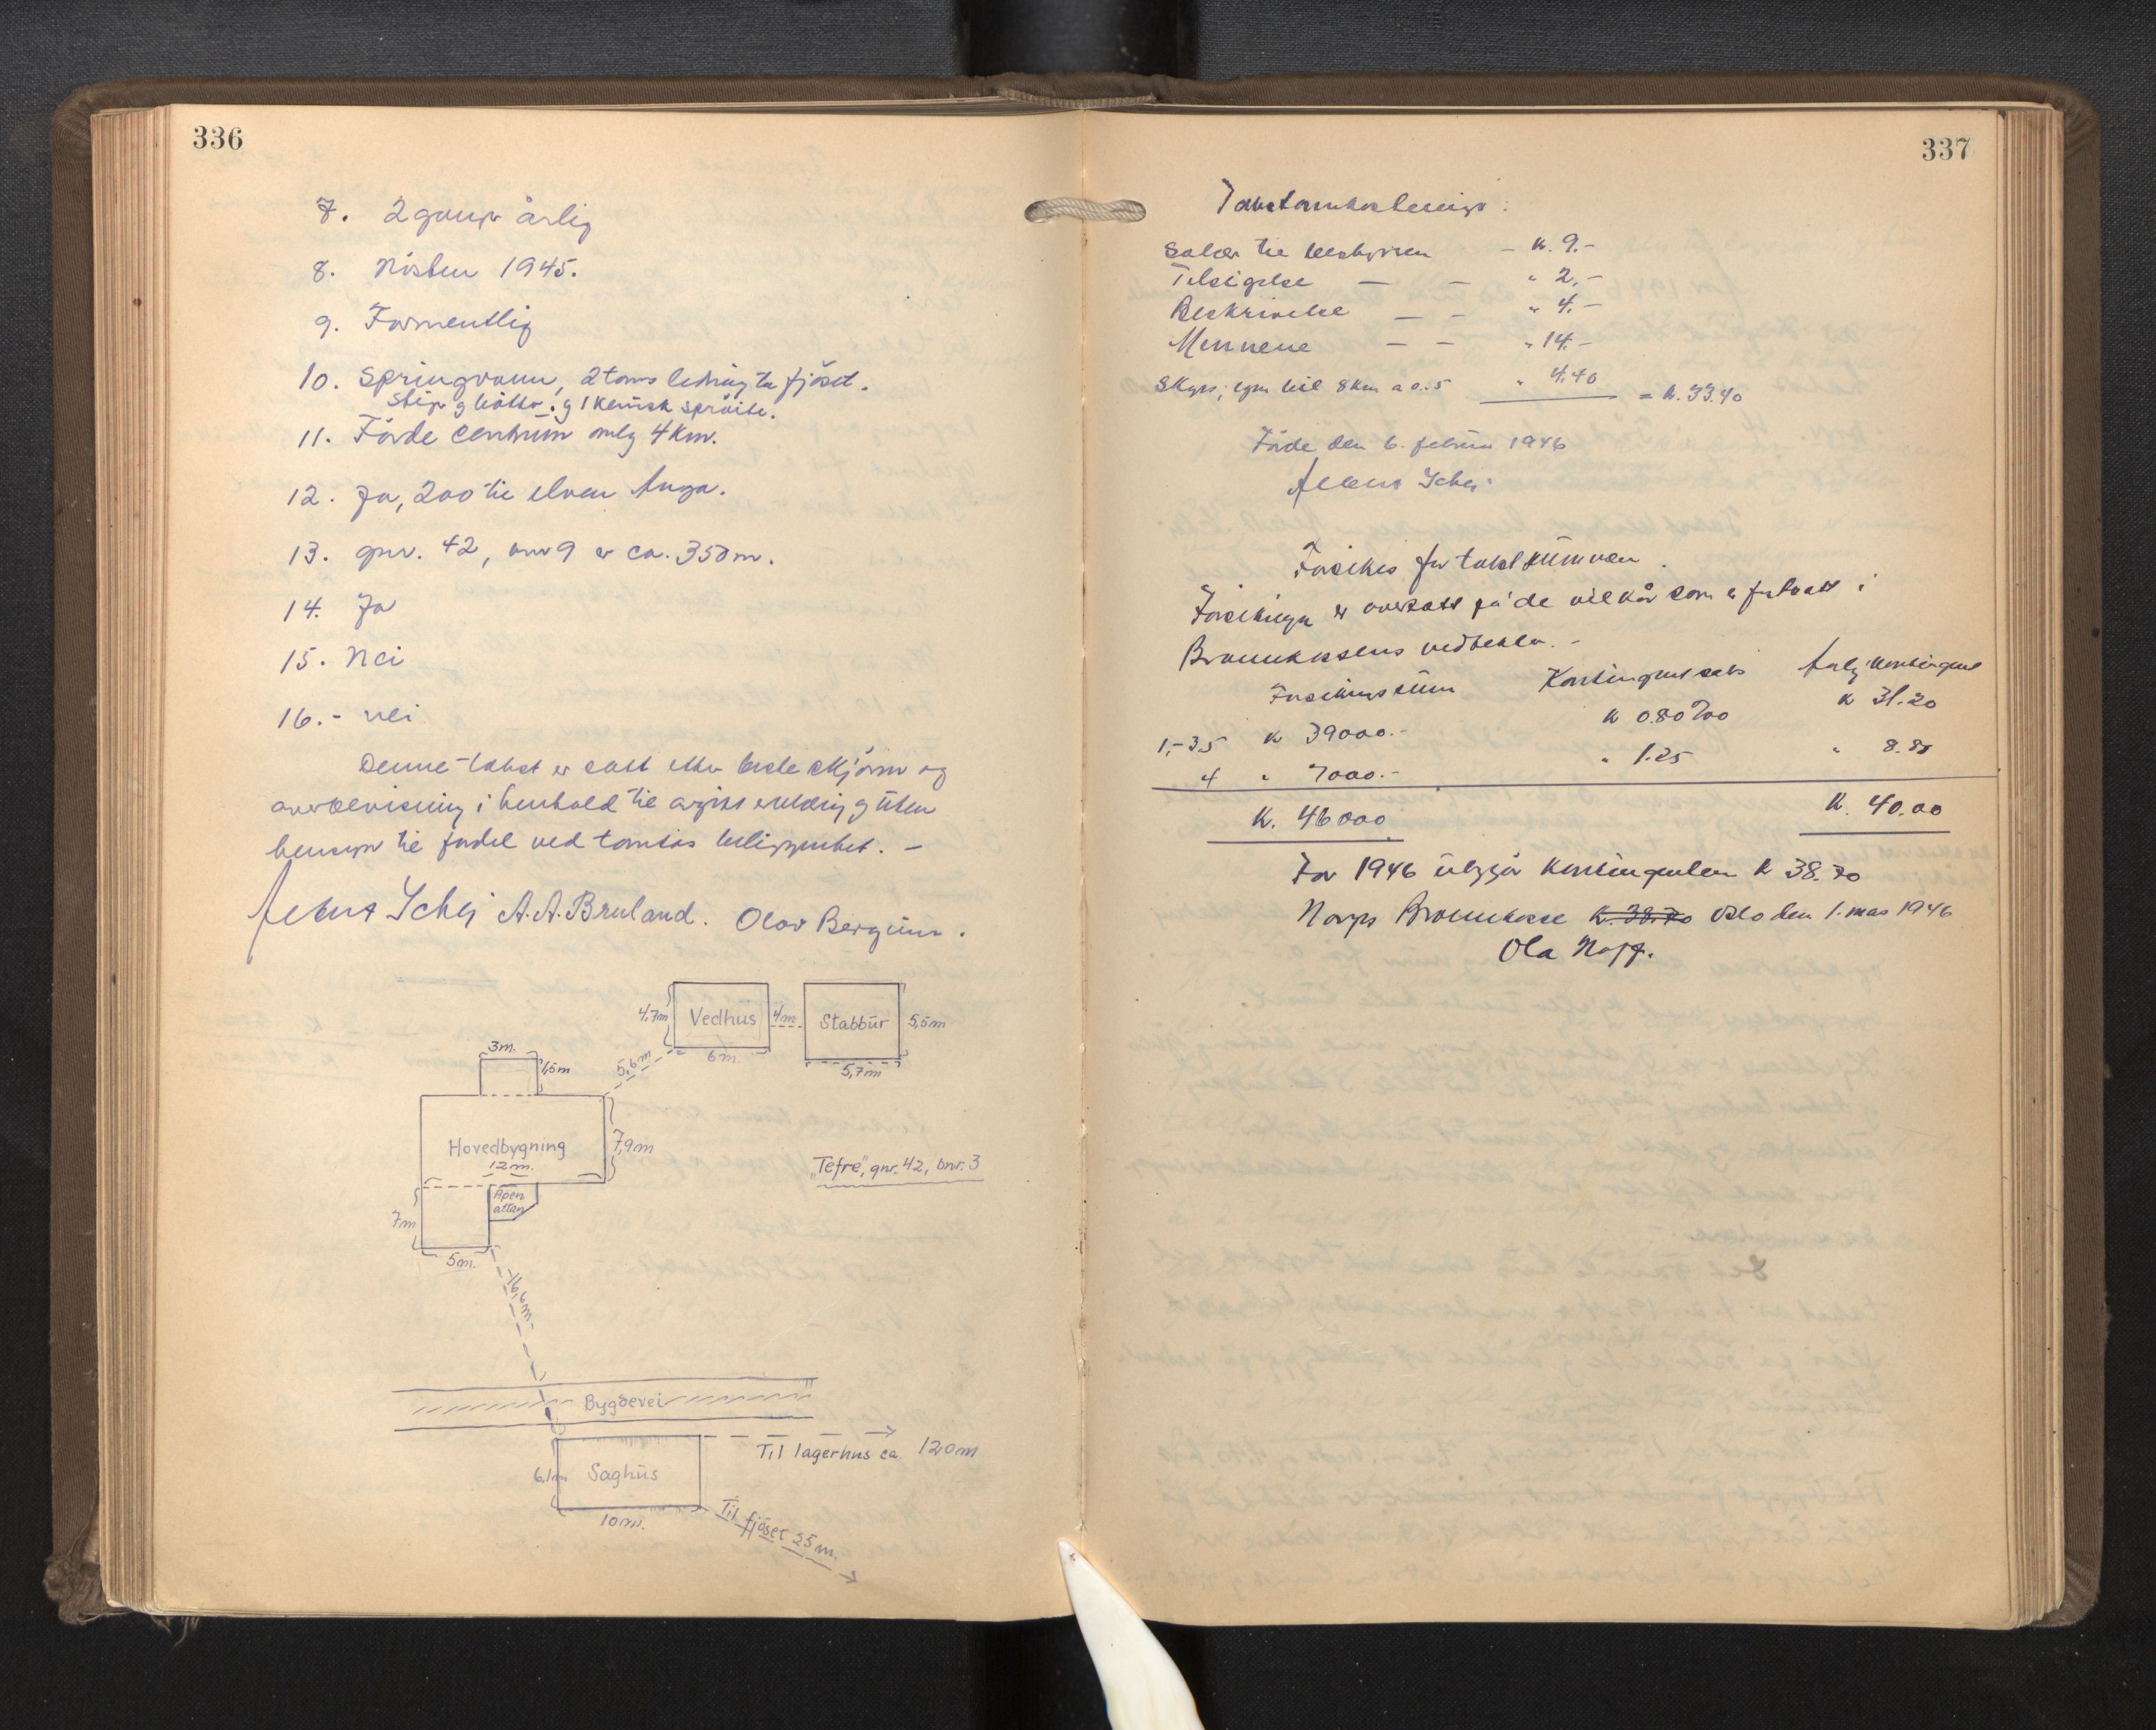 336
7. 2 ganger årlig
8. Hösten 1945.
9. Formentlig
10. Springvann, 2 toms ledning til fjöset.
Stiger og bötter. og 1 kemisk spröite.
11. Förde centrum omlag 4 km.
12. Ja, 200 til elven Anga.
13. gnr. 42, bnr 9 er ca. 350 m.
14. Ja
15. Nei
16. - nei
Denne takst er satt etter beste skjönn og
overbevisning i henhold til avgitt erklæring og uten
hensyn til fordel ved tomtas beliggenhet. -
Schei A. A. Bruland. Olav Bergum.
4,7m Vedhus 4m Stabbur 5,5m
6m. 5,7m
3m. 1,5m 5,6m
Hovedbygning 7,9m
12m.
"Tefre", gnr. 42, bnr. 3
Åpen
altan
7m
5m.
16,6m.
Bygdevei
Til lagerhus ca 120m
6,1m Saghus
10m.
Til fjöset 25 m.
337
Takstomkostninger:
Salær til bestyreren - k. 9.-
Tilsigelse — - " 2.-
Beskrivelse — - " 4.-
Mennene — - " 14.-
Skyss; egen bil 8 km a 0.55 " 4.40 = k. 33.40
Förde den 6. februar 1946
Schei
Forsikres for takstsummen.
Forsikringen er overtatt på de vilkår som er fastsatt i
Brannkassens vedtekter. -
Forsikringssum Kontingentsats Årlig kontingent
1.-3.5 k 39000.- k 0.80 ‰ k 31.20
4 " 7000.- " 1.25 " 8.80
K. 46000 K. 40.00
For 1946 utgjör kontingenten k 38.70
Norges Brannkasse k. 38.70 Oslo den 1. mars 1946
Ola Hoff.